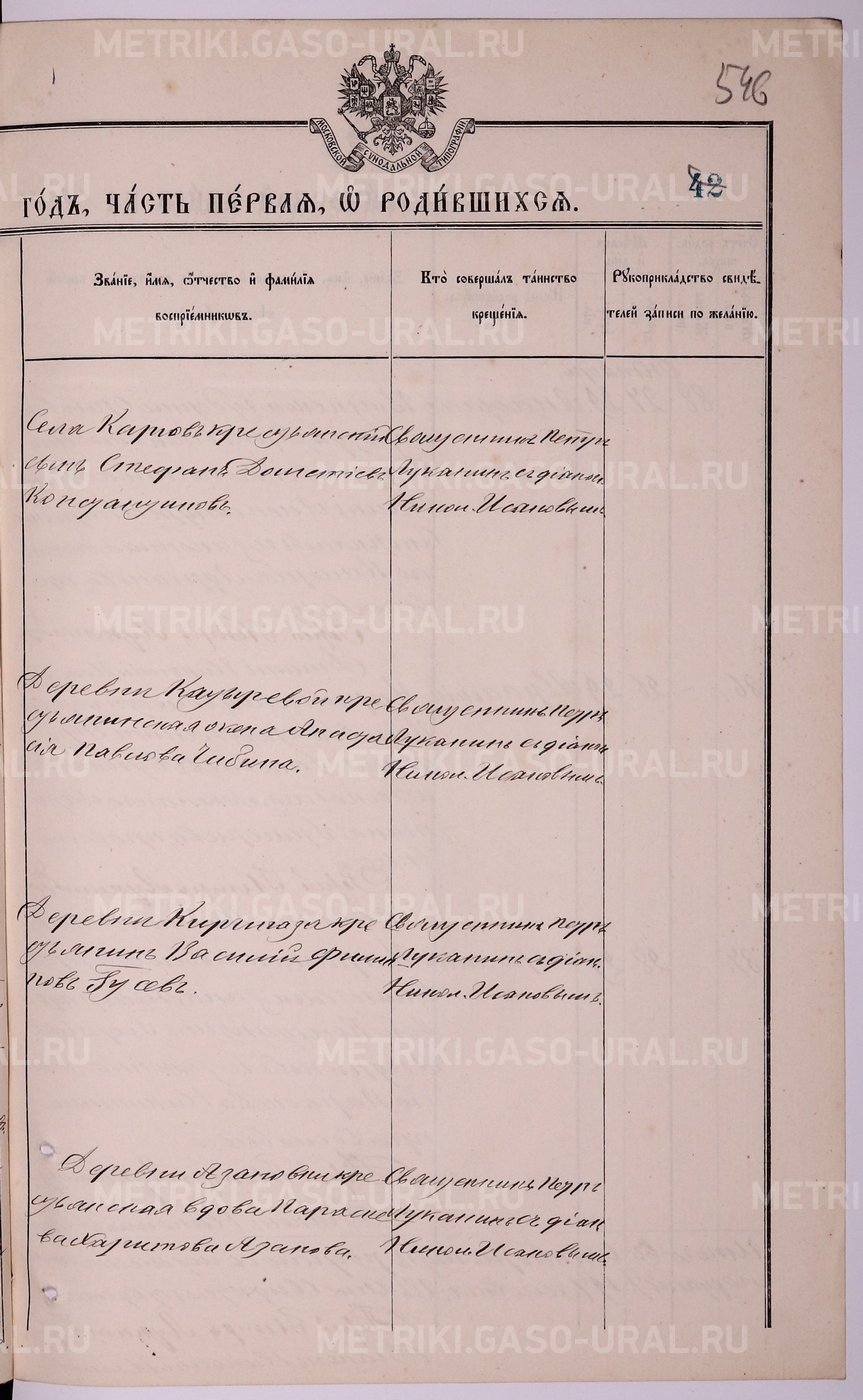 546
МОСКОВСКОЙ СУНОДАЛЬНОЙ ТИПОГРАФІИ
42
го́дъ, ча́сть пе́рвая, ѡ҆ роди́вшихся.
Зва́нїе, и҆́мя, ѻ҆́тчество и҆ фами́лїя
воспрїе́мникѡвъ.
Кто̀ соверша́лъ та́инство
креще́нїя.
Рꙋкоприкла́дство свидѣ́-
телей за́писи по жела́нїю.
Села Карповъ крестьянскій
сынъ Стефанъ Дометіевъ
Константиновъ.
Священникъ Петръ
Луканинъ съ діакон.
Никол. Исаковымъ.
Деревни Каузыревой кре
стьянинская жена Анаста
сія Павлова Чибина.
Священникъ Петръ
Луканинъ съ діакон
Никол. Исаковымъ.
Деревни Киргишаза кре
стьянинъ Василій Филип
повъ Гусевъ.
Священникъ Петръ
Луканинъ съ діакон.
Никол. Исаковымъ.
Деревни Азановки кре
стьянская вдова Параске
ва Харитова Азанова.
Священникъ Петръ
Луканинъ съ діакон
Никол. Исаковымъ.
METRIKI.GASO-URAL.RU